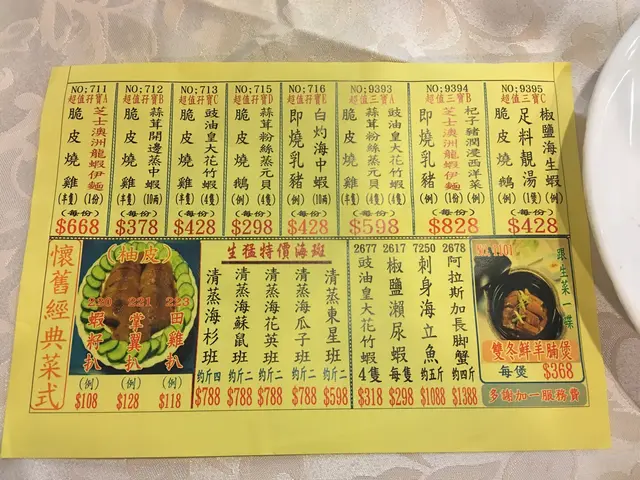 NO:711
超值孖寶A
脆皮燒雞(半隻)
芝士澳洲龍蝦伊麵(1份)
(每份)
$668
NO:712
超值孖寶B
脆皮燒雞(半隻)
蒜茸開邊蒸中蝦(10兩)
(每份)
$378
NO:713
超值孖寶C
脆皮燒雞(半隻)
豉油皇大花竹蝦(4隻)
(每份)
$428
NO:715
超值孖寶D
脆皮燒鵝(例)
蒜茸粉絲蒸元貝(4隻)
(每份)
$298
NO:716
超值孖寶E
即燒乳豬(例)
白灼海中蝦(10兩)
(每份)
$428
NO:9393
超值三寶A
脆皮燒雞(半隻)
蒜茸粉絲蒸元貝(4隻)
豉油皇大花竹蝦(4隻)
(每份)
$598
NO:9394
超值三寶B
即燒乳豬(例)
芝士澳洲龍蝦伊麵(1份)
杞子豬潤浸西洋菜(例)
(每份)
$828
NO:9395
超值三寶C
脆皮燒鵝(例)
足料靚湯(1窩)
椒鹽海生蝦(例)
(每份)
$428
懷舊經典菜式
(柚皮)
220
蝦籽扒
(例)
$108
221
掌翼扒
(例)
$128
223
田雞扒
(例)
$118
生猛特價海斑
清蒸海杉班
約斤四
$788
清蒸海蘇鼠班
約斤二
$788
清蒸海花英班
約斤二
$788
清蒸海瓜子班
約斤二
$788
清蒸東星班
約斤二
$598
2677
豉油皇大花竹蝦
4隻
$318
2617
椒鹽瀨尿蝦
每隻
$298
7250
刺身海立魚
約五斤
$1088
2678
阿拉斯加長脚蟹
約四斤
$1388
跟生菜一碟
雙冬鮮羊腩煲
每煲
$368
多謝加一服務費